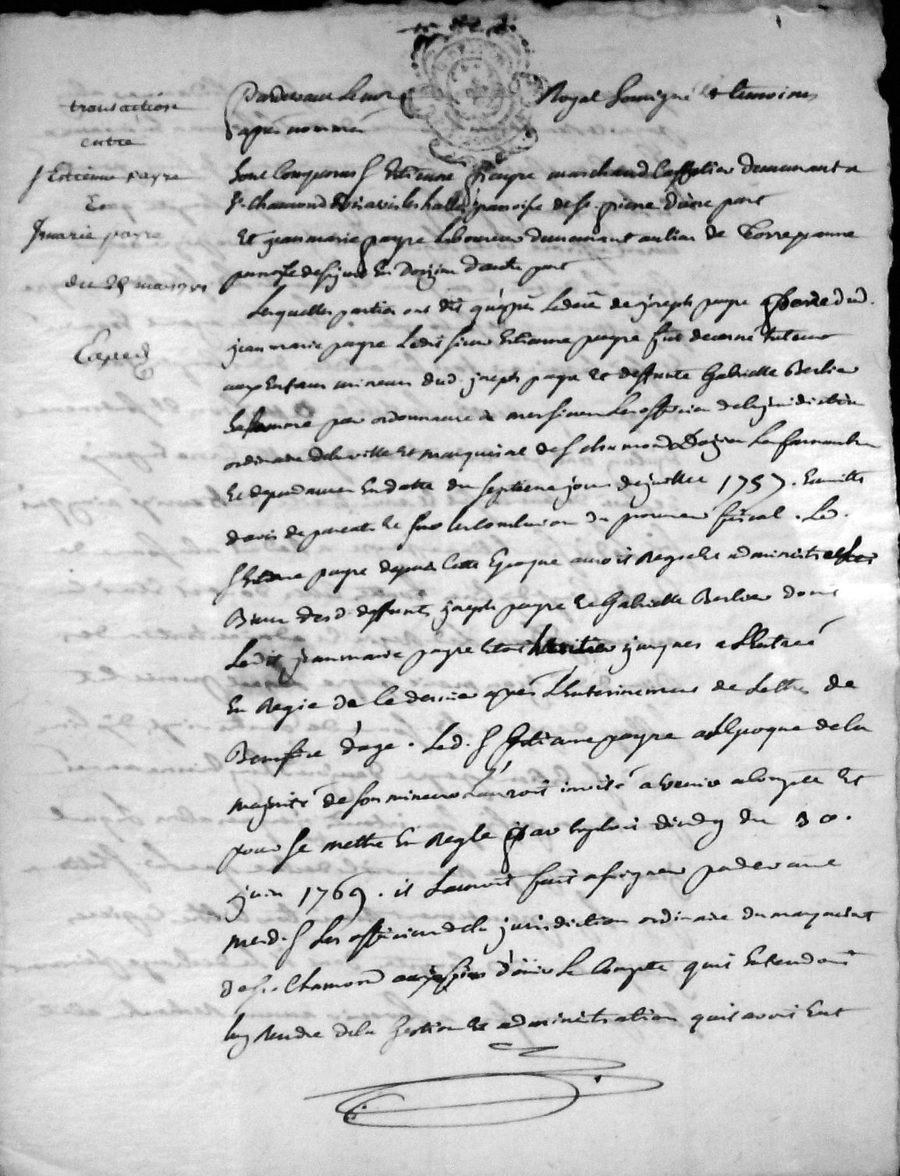 transaction
entre
s Estienne payre
Et
Jmarie payre
du 29 mars
Exped
Pardevant Le no.re Royal Soussigné & temoins
apres nommés
Sont Comparus s. Estienne payre marchand Caffetier demeurant a
s.t chamond paroisse de s.t pierre d'une part
Et jean marie payre Laboureur demeurant au lieu de
paroisse de En Doizieu d'autre part
Lesquelles parties ont dit qu'apres Le deces de joseph payre pere dud.
jean marie payre Ledit sieur Estienne payre fut decerné tuteur
aux Enfans mineurs dud. joseph payre Et deffunte Gabrielle Berlier
Sa femme par ordonnance de messieurs Les officiers de la juridiction
ordinaire de la ville Et marquisat de s.t chamond
Et dependances En datte du Septieme jour de juillet 1757. Ensuitte
d'avis de parents Et sur les Conclusions du procureur fiscal. Led.
s. Estienne payre depuis Cette Epoque auroit Regi Et administré les
Biens desd. deffunts joseph payre Et Gabrielle Berlier dont
Ledit jean marie payre Etoit heritier jusques a l'Entrée
En Regie de Ce dernier apres L'Enterinement de Lettres de
Benefice d'age. Led. s. Estienne payre a l'Epoque de la
majorité de son mineur L'auroit invité a venir a Compte Et
pour se mettre En Regle par Exploit du 30.
juin 1769. il L'auroit fait assigner pardevant
mesd. s. Les officiers de la jurisdiction ordinaire du marquisat
de s.t Chamond d'ouir Le Compte qu'il Entendoit
luy Rendre de la Gestion Et administration qu'il avoit Eut